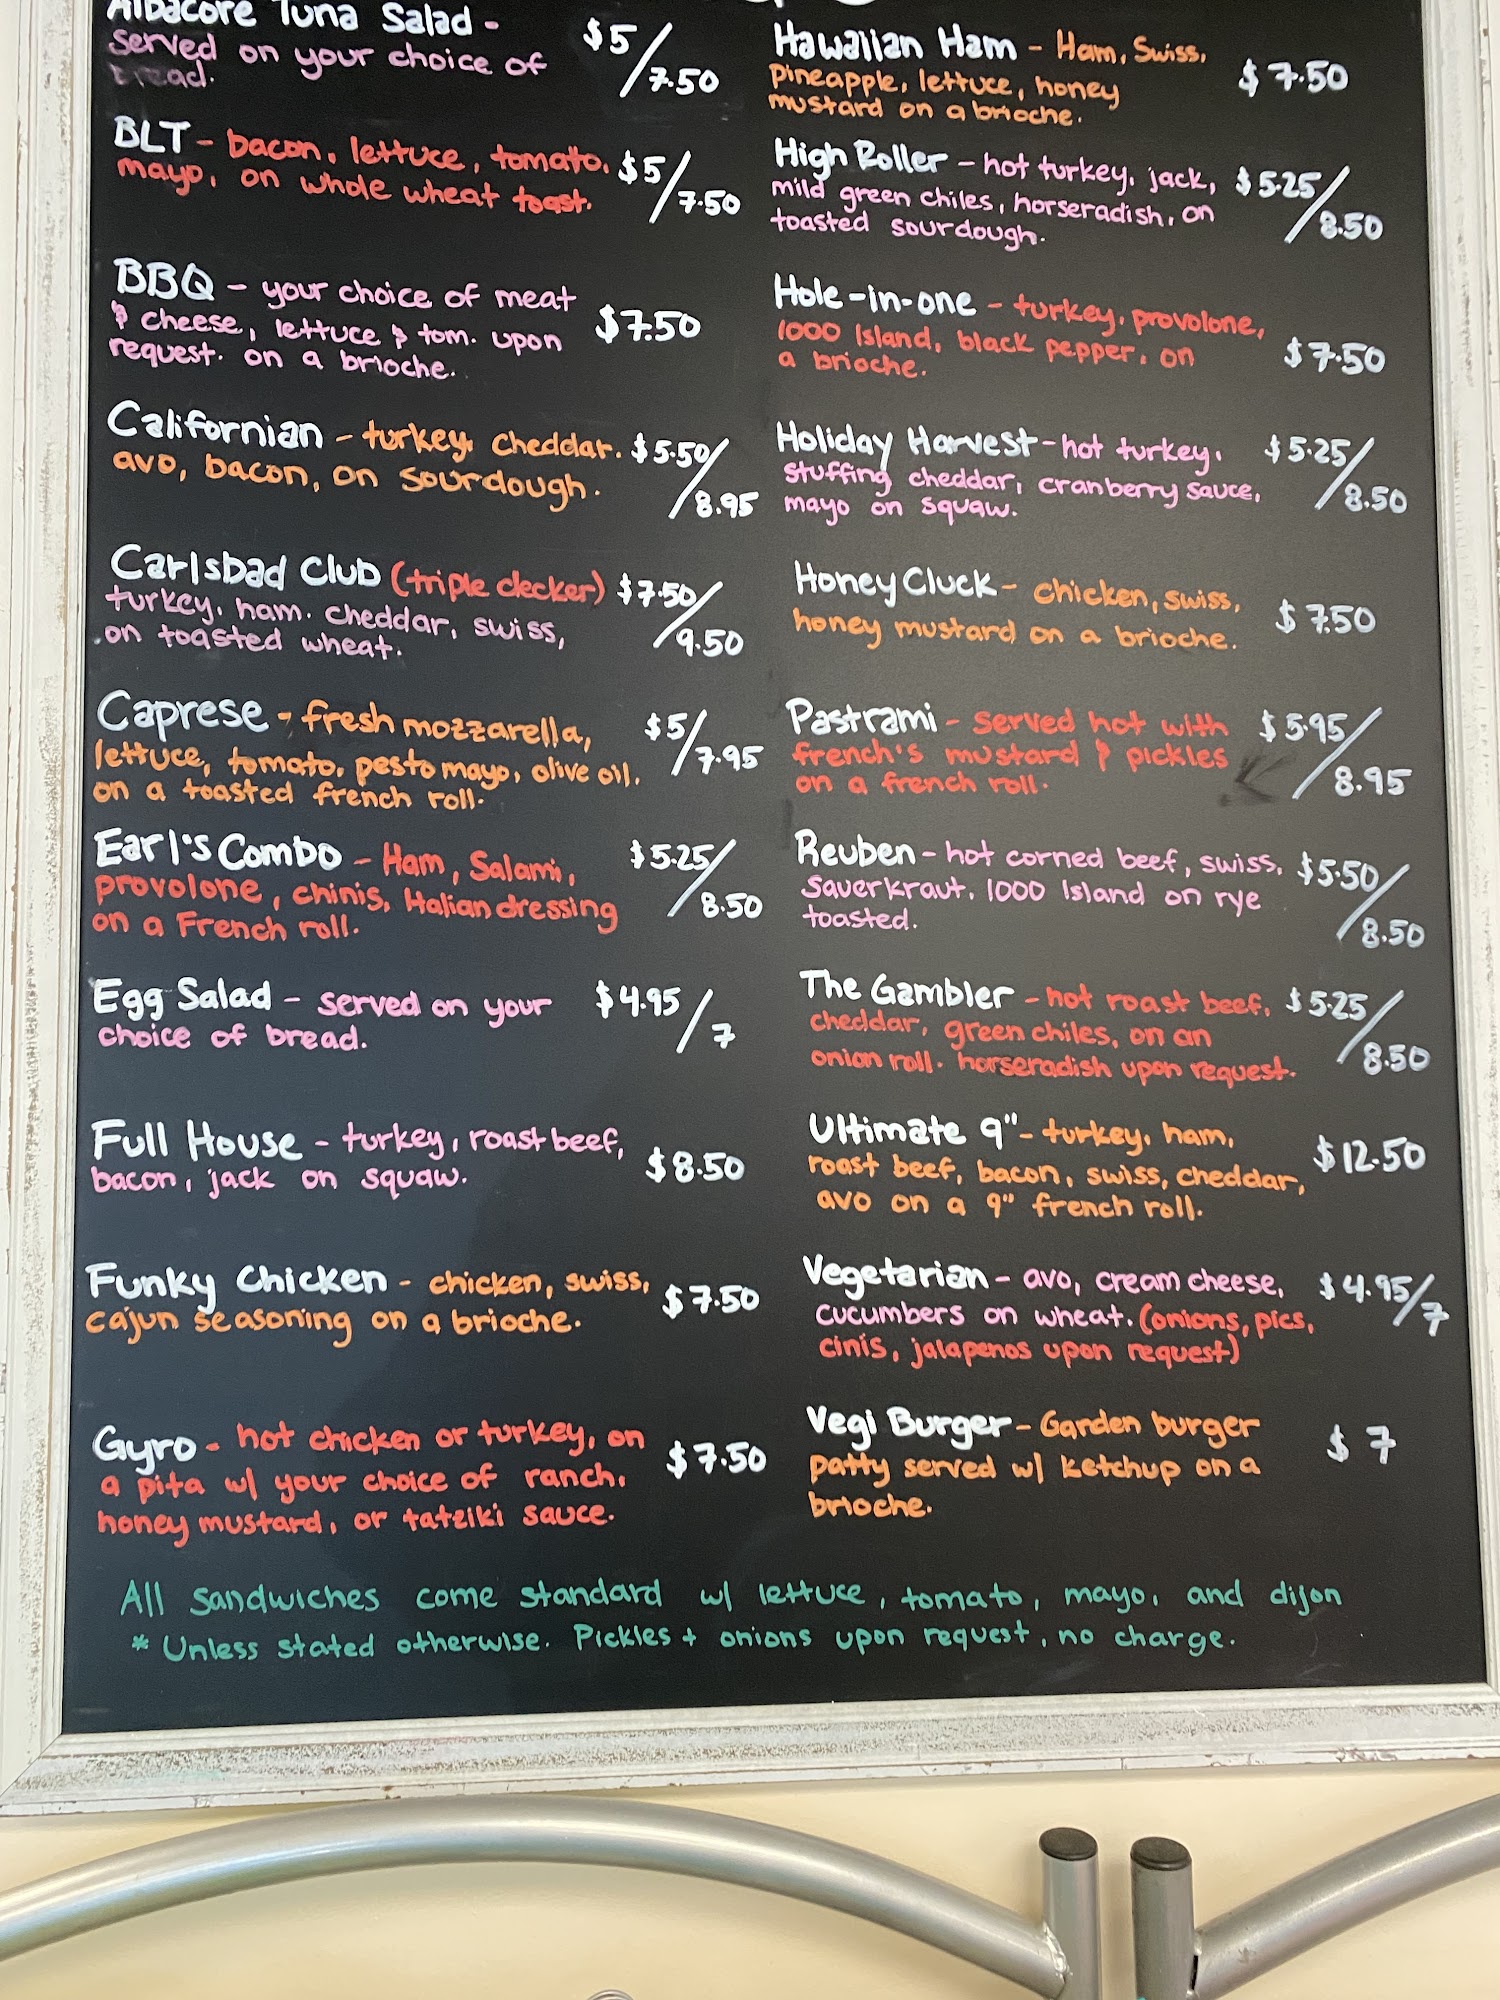 Albacore Tuna Salad -
served on your choice of
bread.
$5/7.50
BLT - bacon, lettuce, tomato,
mayo, on whole wheat toast.
$5/7.50
BBQ - your choice of meat
& cheese, lettuce & tom. upon
request. on a brioche.
$7.50
Californian - turkey, cheddar,
avo, bacon, on sourdough.
$5.50/8.95
Carlsbad Club (triple decker)
turkey, ham, cheddar, swiss,
on toasted wheat.
$7.50/9.50
Caprese - fresh mozzarella,
lettuce, tomato, pesto mayo, olive oil,
on a toasted french roll.
$5/7.95
Earl's Combo - Ham, Salami,
provolone, chinis, Italian dressing
on a French roll.
$5.25/8.50
Egg Salad - served on your
choice of bread.
$4.95/7
Full House - turkey, roast beef,
bacon, jack on squaw.
$8.50
Funky Chicken - chicken, swiss,
cajun seasoning on a brioche.
$7.50
Gyro - hot chicken or turkey, on
a pita w/ your choice of ranch,
honey mustard, or tatziki sauce.
$7.50
Hawaiian Ham - Ham, Swiss,
pineapple, lettuce, honey
mustard on a brioche.
$7.50
High Roller - hot turkey, jack,
mild green chiles, horseradish, on
toasted sourdough.
$5.25/8.50
Hole-in-one - turkey, provolone,
1000 Island, black pepper, on
a brioche.
$7.50
Holiday Harvest - hot turkey,
stuffing cheddar, cranberry sauce,
mayo on squaw.
$5.25/8.50
Honey Cluck - chicken, swiss,
honey mustard on a brioche.
$7.50
Pastrami - served hot with
french's mustard & pickles
on a french roll.
$5.95/8.95
Reuben - hot corned beef, swiss,
Sauerkraut, 1000 Island on rye
toasted.
$5.50/8.50
The Gambler - hot roast beef,
cheddar, green chiles, on an
onion roll. horseradish upon request.
$5.25/8.50
Ultimate 9" - turkey, ham,
roast beef, bacon, swiss, cheddar,
avo on a 9" french roll.
$12.50
Vegetarian - avo, cream cheese,
cucumbers on wheat. (onions, pics,
cinis, jalapenos upon request)
$4.95/7
Vegi Burger - Garden burger
patty served w/ ketchup on a
brioche.
$7
All sandwiches come standard w/ lettuce, tomato, mayo, and dijon
* Unless stated otherwise. Pickles + onions upon request, no charge.